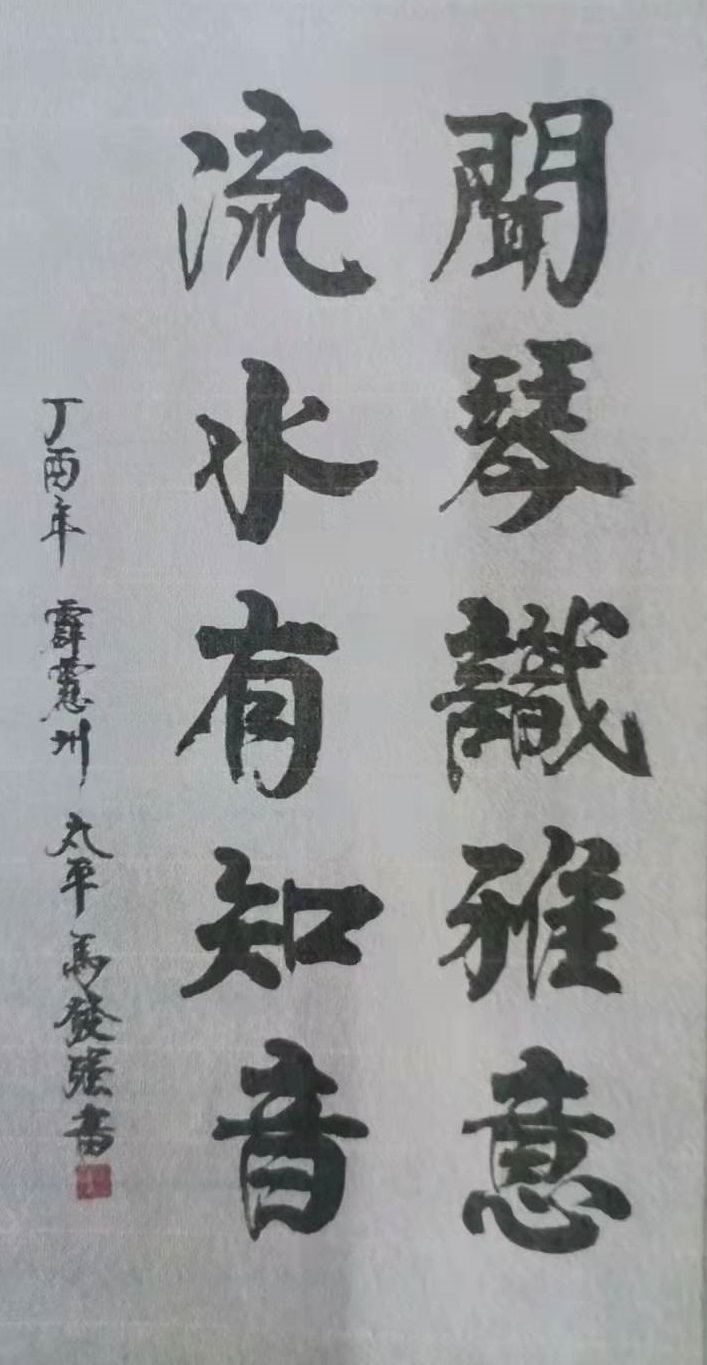 聞琴識雅意
流水有知音
丁酉年 霹靂州 太平 馬發強書